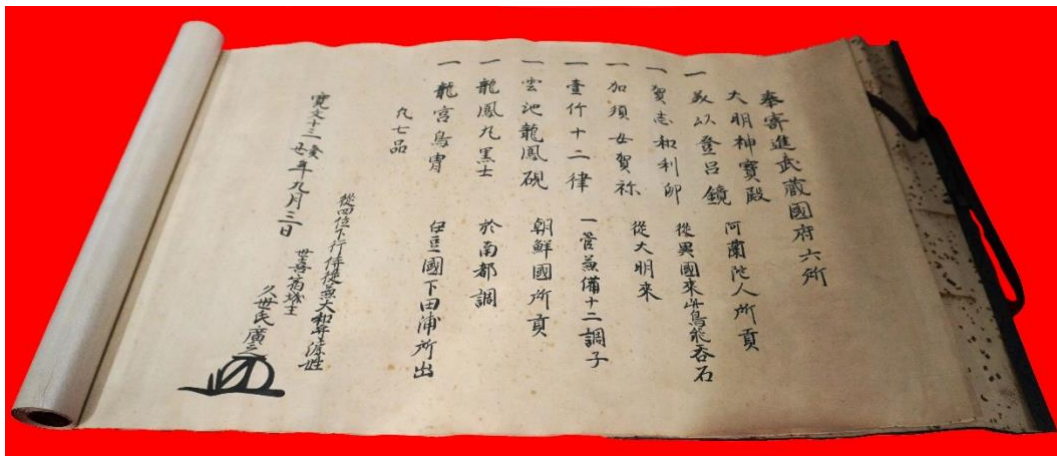 奉寄進武蔵國府六所
大明神寳殿
一 美以登呂鏡 阿蘭陀人所貢
一 賀志和利卵 從異國來此鳥能吞石
一 加須女賀祢 從大明来
一 壹竹十二律 一管兼備十二調子
一 雲池龍鳳硯 朝鮮國所貢
一 龍鳳丸黒士 於南都調
一 龍宮鳥冑 伊豆國下田浦所出
凡七品
寛文十三癸丑年九月三日
從四位下行侍從兼大和守源姓
世喜宿城主
久世氏廣之